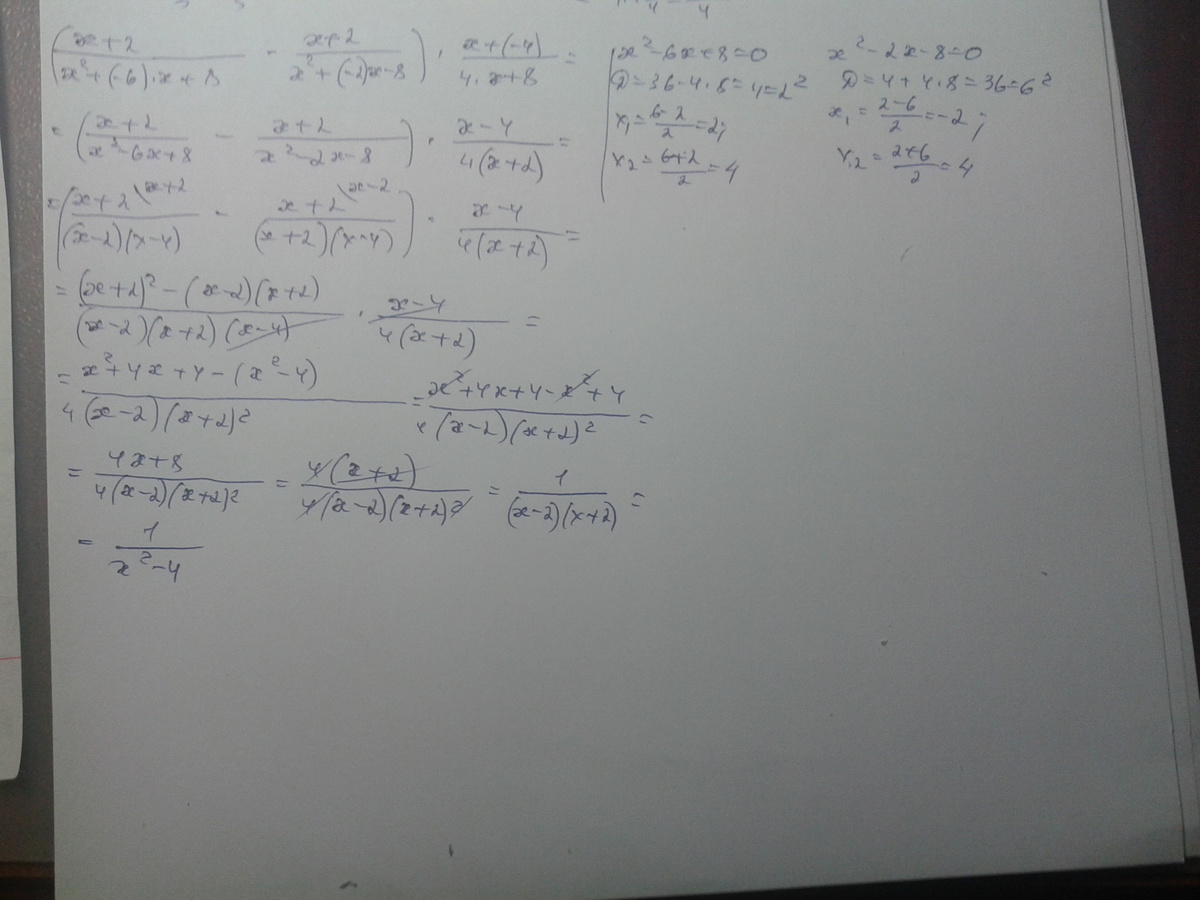 (x+2)/(x²+(-6)·x+8) - (x+2)/(x²+(-2)x-8)) · (x+(-4))/(4·x+8) =
= ((x+2)/(x²-6x+8) - (x+2)/(x²-2x-8)) · (x-4)/(4(x+2)) =
= ((x+2\x+2)/((x-2)(x-4)) - (x+2\x-2)/((x+2)(x-4))) · (x-4)/(4(x+2)) =
= ((x+2)²-(x-2)(x+2))/((x-2)(x+2)(x-4)) · (x-4)/(4(x+2)) =
= (x²+4x+4-(x²-4))/(4(x-2)(x+2)²) = (x²+4x+4-x²+4)/(4(x-2)(x+2)²) =
= (4x+8)/(4(x-2)(x+2)²) = (4(x+2))/(4(x-2)(x+2)²) = 1/((x-2)(x+2)) =
= 1/(x²-4)
x²-6x+8=0
D=36-4·8=4=2²
x₁=(6-2)/2=2;
x₂=(6+2)/2=4
x²-2x-8=0
D=4+4·8=36=6²
x₁=(2-6)/2=-2;
x₂=(2+6)/2=4